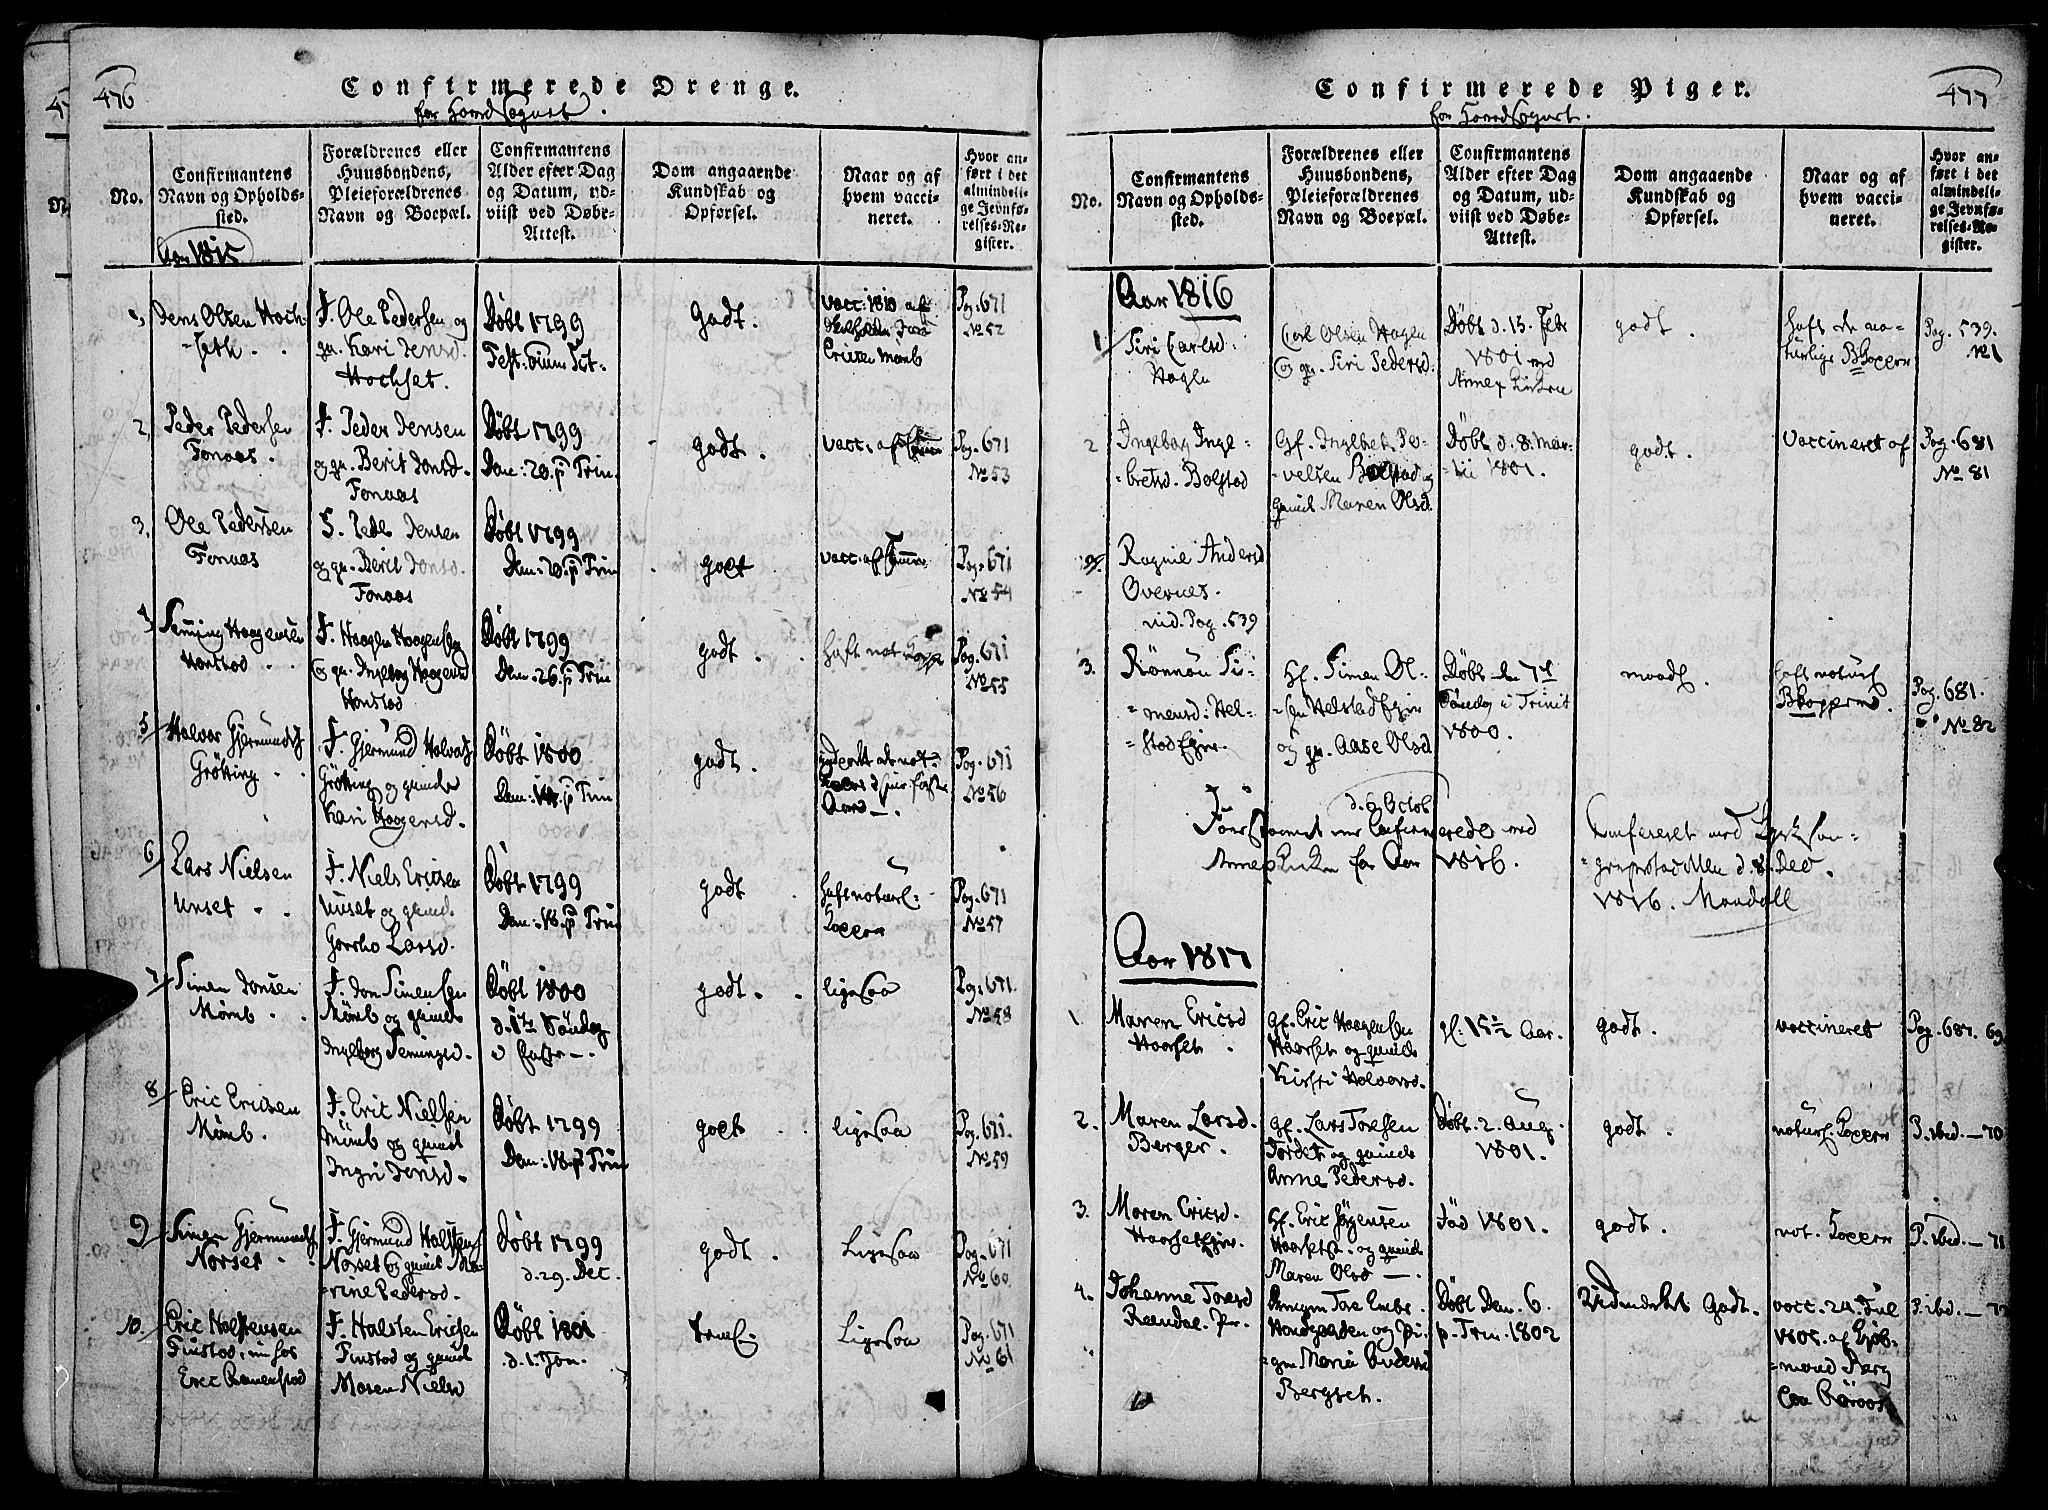 476
Confirmerede Drenge.
for Hoved Sognet.
No.
Confirmantens
Navn og Opholds-
sted.
Forældrenes eller
Huusbondens,
Pleieforældrenes
Navn og Boepæl.
Confirmantens
Alder efter Dag
og Datum, ud-
viist ved Døbe-
Attest.
Dom angaaende
Kundskab og
Opførsel.
Naar og af
hvem vacci-
neret.
Hvor an-
ført i det
almindeli-
ge Jevnfø-
relses-Re-
gister.
Aar 1815
1,
Jens Olsen Hoch-
-seth.
F. Ole Pedersen og
qv. Kari Jensd.
Hochset.
Døbt 1799
Fest:
Godt.
vacc: 1810 af
Pag. 671
No 52
2,
Peder Pedersen
Fonaas.
F. Peder Jensen
og qv. Berit Jonsd.
Fonaas
Døbt 1799
Dom: 20. p Trin.
godt.
vacc. af
Pag. 671
No 53
3.
Ole Pedersen
Fonaas
F. Peder Jensen
og qv. Berit Jonsd.
Fonaas
Døbt 1799
Dom: 20. p Trin
godt
vacc. af
Pag. 671
No 54
4
Seming Haagensen
Honstad
F. Haagen Haagensen
og qv. Ingebor Haagensd
Honstad
Døbt 1799
Dom. 26. p Trin
godt.
haft nat Kopp
Pag. 671
No 55
5
Halvor Gjermunds
Grötting
F. Gjermund Halvors
Grötting og qvinde
Kari Haagensd.
Døbt 1800
Dom: p Trin
godt.
Aars.
Pag. 671
No 56
6
Lars Nielsen
Unset
F. Niels Ericsen
Unset og qvind.
Goroho Larsd.
Døbt 1799
Dom: 18. p Trin
godt
haft naturl:
Koppern
Pag. 671
No 57
7
Simen Jonsen
Mömb
F. Jon Simensen
Mömb og qvinde
Ingeborg Semingsd.
Døbt 1800
d. 1te Söndag
i Faste
godt.
ligesaa
Pag. 671.
No 58
8
Eric Ericsen
Mömb.
F. Eric Nielsen
Mömb og qvind
Ingri Jensd.
Døbt 1799
Dom: 18. p Trin
godt
ligesaa
Pag. 671.
No 59
9
Simen Gjermunds
Norset
F. Gjermund Halstens
Norset og qvind Ma-
-rine Pedersd.
Døbt 1799
d. 29. Dec.
godt.
Ligesaa
Pag. 671
No 60
10.
Eric Halstensen
Finstad, nu hos
Eric Romenstad
F. Halsten Ericsen
Finstad og qvind
Maren Nielsd
Døbt 1801
d. 1. Jan.
Ligesaa
Pag. 671
No 61
477
Confirmerede Piger.
for Hoved Sognet.
No.
Confirmantens
Navn og Opholds-
sted.
Forældrenes eller
Huusbondens,
Pleieforældrenes
Navn og Boepæl.
Confirmantens
Alder efter Dag
og Datum, ud-
viist ved Døbe-
Attest.
Dom angaaende
Kundskab og
Opførsel.
Naar og af
hvem vacci-
neret.
Hvor an-
ført i det
almindeli-
ge Jevnfø-
relses-Re-
gister.
Aar 1816
1
Siri Carlsd:
Hagen
Carl Olsen Hagen
og qv. Siri Pedersd.
Døbt d. 15. Febr
1801 ved
Annex Kirken
godt.
haft de na-
turlige BKopper
Pag. 539.
No 1
2
Ingebor Inge-
-bretsd. Bolstad
Gf. Ingebret Pe-
-velsen Bolstad og
qvind Maren Olsd.
Døbt d. 8. Mar-
-tii 1801.
godt.
Vaccineret af
Pag. 681
No 81
Ragnil Andersd
Overnes.
vid. Pag. 539
3.
Rönnou Si-
mensd: Hel-
stad Ejer.
Gf. Simen Ol-
-sen Helstad Ejer
og qv. Aase Olsd
Døbt den 7de
Söndag i Trinit
1800.
maadl.
haft naturl
BKoppern.
Pag. 681.
No 82
d. 6 Octob
Foerstaaende ere Confirmerede ved
Annex Kirken for Aar 1816.
Confereret med Kirkesan-
-grepstabellen d. 8. Dec.
1816. Maadall
Aar 1817
1.
Maren Ericsd
Haarset
gf. Eric Haagensen
Haarset og qvinde
Kirsti Halvorsd.
gl. 15½ Aar.
godt.
vaccineret
Pag. 681. 69
2.
Maren Larsd.
Berger.
gf. Lars Toresen
Tordet og qvinde
Anne Pedersd.
Døbt. 2. Aug.
1801.
godt.
naturl. Koppern
P. ibid. — 70
3.
Maren Ericsd.
Haarset Ejer.
Gf. Eric Jörgensen
Haarset. og qvinde
Maren Olsd —.
Fød 1801.
godt.
nat. Koppern
P. ibid. — 71
4.
Johanne Toresd
Reendal. Pr.
Ungkm Tore Embr.
Hondgarden og Pi-
-gen Maria Andersd
Bergset.
Døbt Dom. 6.
p. Trin. 1802
Udmerket Godt.
vacc. 24. Jul
1805. af Gjöb-
-mand Berg
paa Röraas
P. ibid. — 72